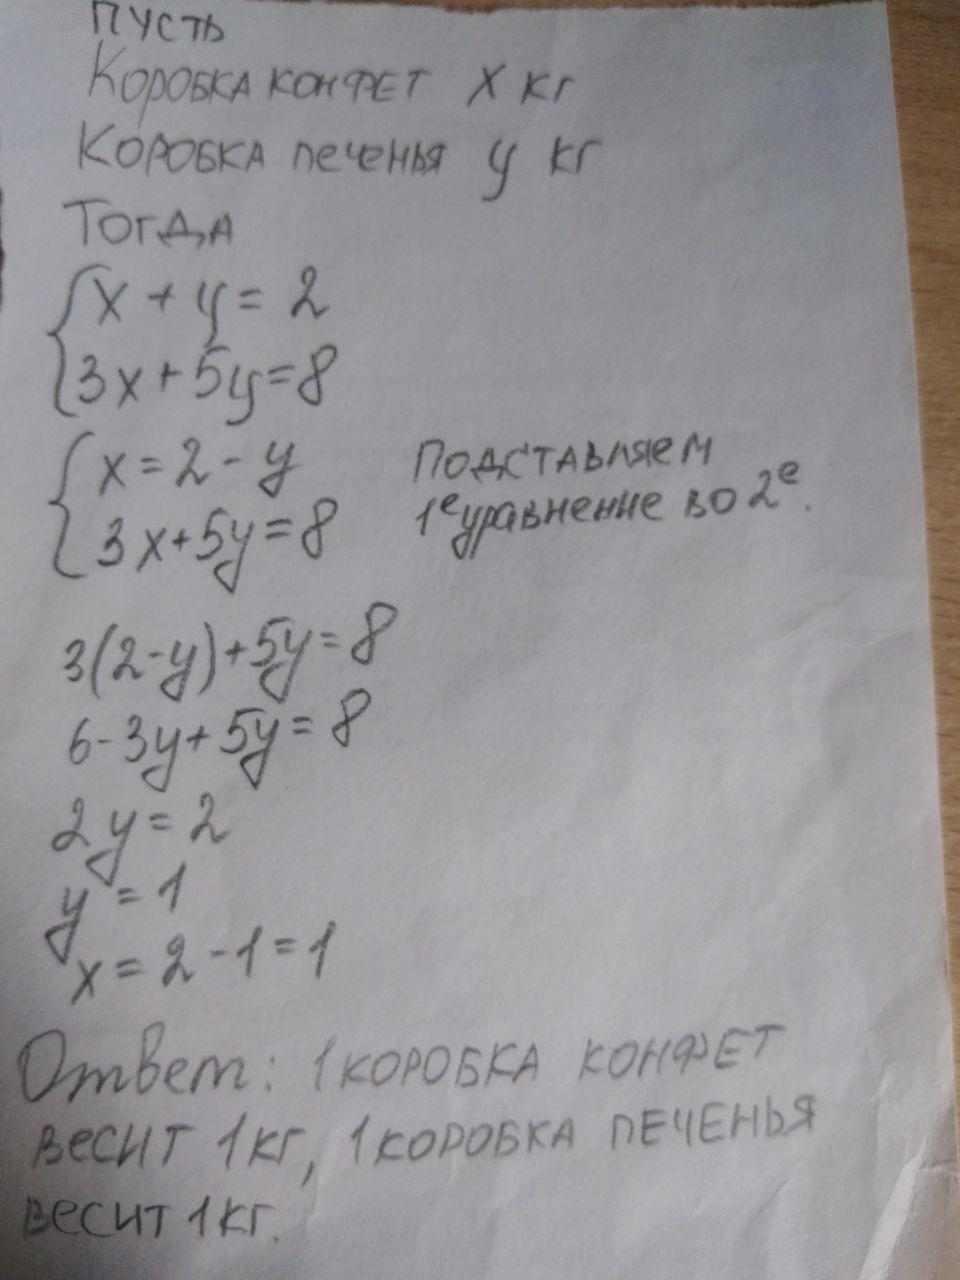 Пусть
Коробка конфет x кг
Коробка печенья y кг
Тогда
{ x + y = 2
3x + 5y = 8
{ x = 2 - y Подставляем
3x + 5y = 8 1е уравнение во 2е.
3(2 - y) + 5y = 8
6 - 3y + 5y = 8
2y = 2
y = 1
x = 2 - 1 = 1
Ответ: 1 коробка конфет
весит 1 кг, 1 коробка печенья
весит 1 кг.